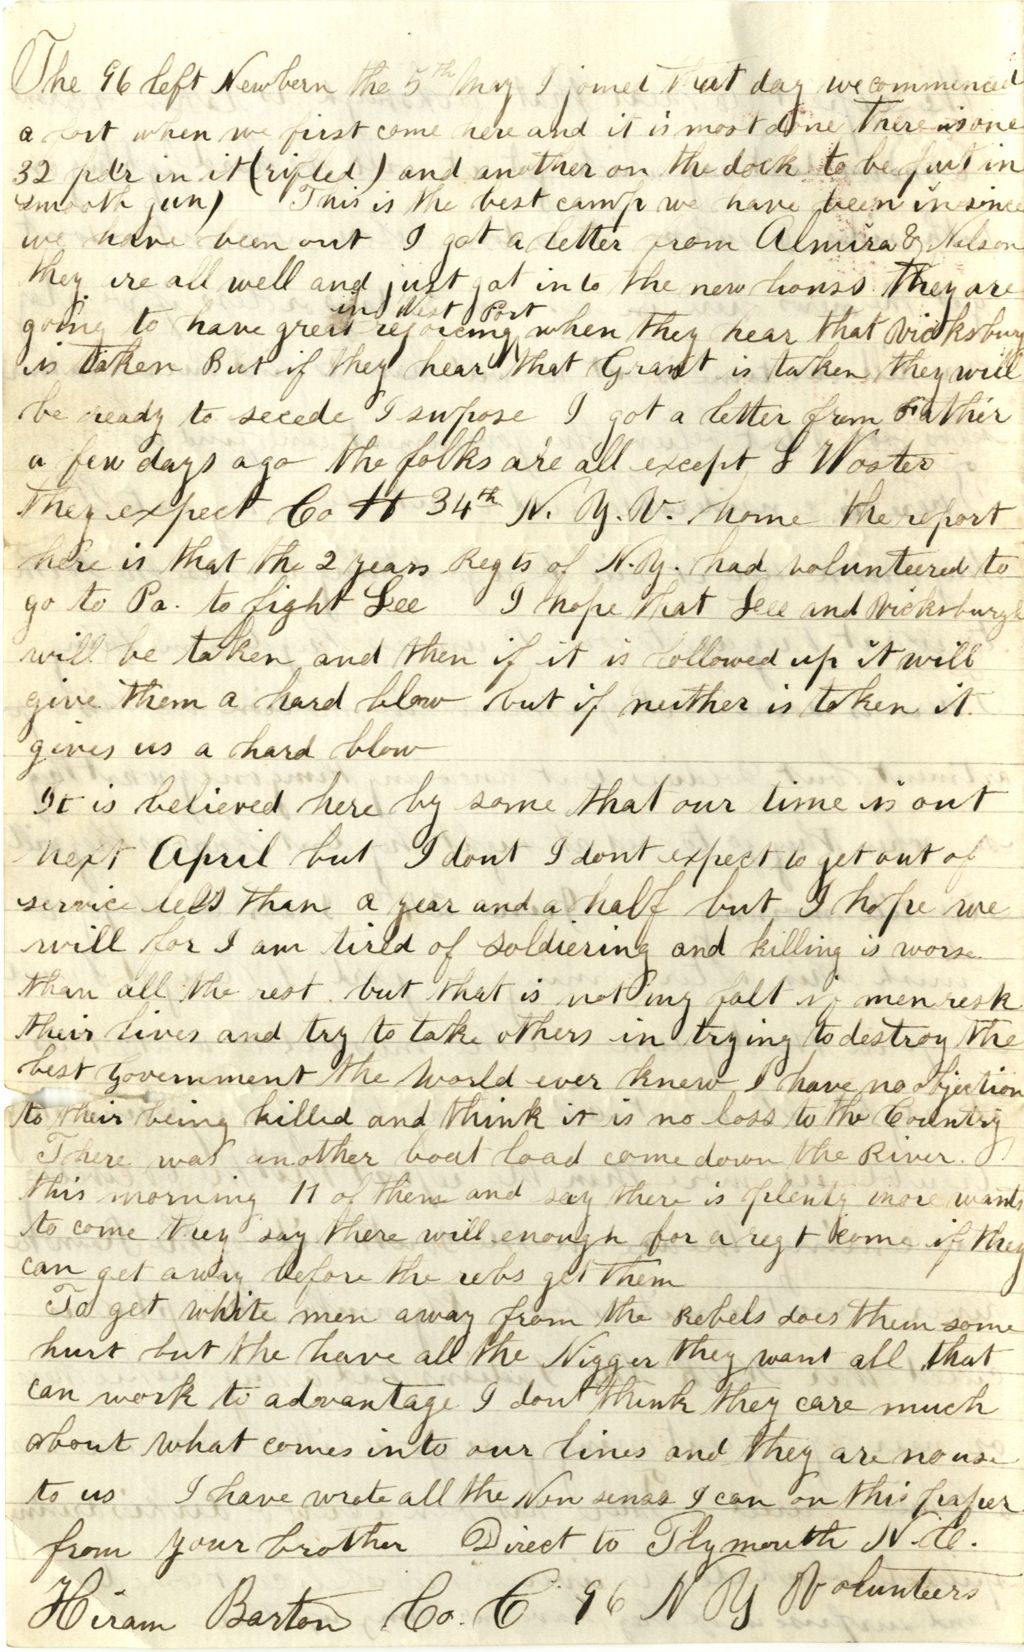 The 96 left Newbern the 5th May I joined that day we commenced
a fort when we first come here and it is most done There is one
32 pdr in it (rifled) and another on the dock to be put in
smooth gun) This is the best camp we have been in since
we have been out I got a letter from Almira & Nelson
they are all well and just got into the new house they are
in West Port
going to have great rejoicing when they hear that Vicksburg
is taken But if they hear that Grant is taken they will
be ready to secede I supose I got a letter from Father
a few days ago the folks are all except S Woster
They expect Co H 34th N. Y. V. home the report
here is that the 2 years Regts of N.Y. had volunteered to
go to Pa. to fight Lee I hope that Lee and Vicksburgh
will be taken and then if it is followed up it will
give them a hard blow but if neither is taken it
gives us a hard blow
It is believed here by some that our time is out
next April but I dont I dont expect to get out of
service less than a year and a half but I hope we
will for I am tired of soldiering and killing is worse
than all the rest but that is not my falt if men resk
their lives and try to take others in trying to destroy the
best government the world ever knew I have no objection
to their being killed and think it is no loss to the Country
There was another boat load come down the River
this morning 11 of them and say there is plenty more wants
to come they say there will enough for a regt come if they
can get away before the rebs get them
To get white men away from the Rebels does them some
hurt but the have all the Nigger they want all that
can work to advantage I dont think they care much
about what comes into our lines and they are no use
to us I have wrote all the Non senss I can on this paper
from your brother Direct to Plymouth N.C.
Hiram Barton Co. C 96 N Y Volunteers